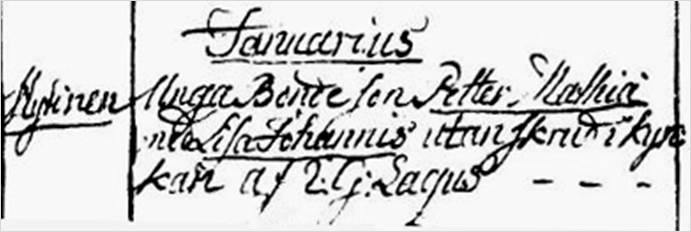 Januarius
Hytinen Unga Bonde son Petter Mathiæ
Lisa Johannis utan skrud i kyr
kan af Lagus - - -